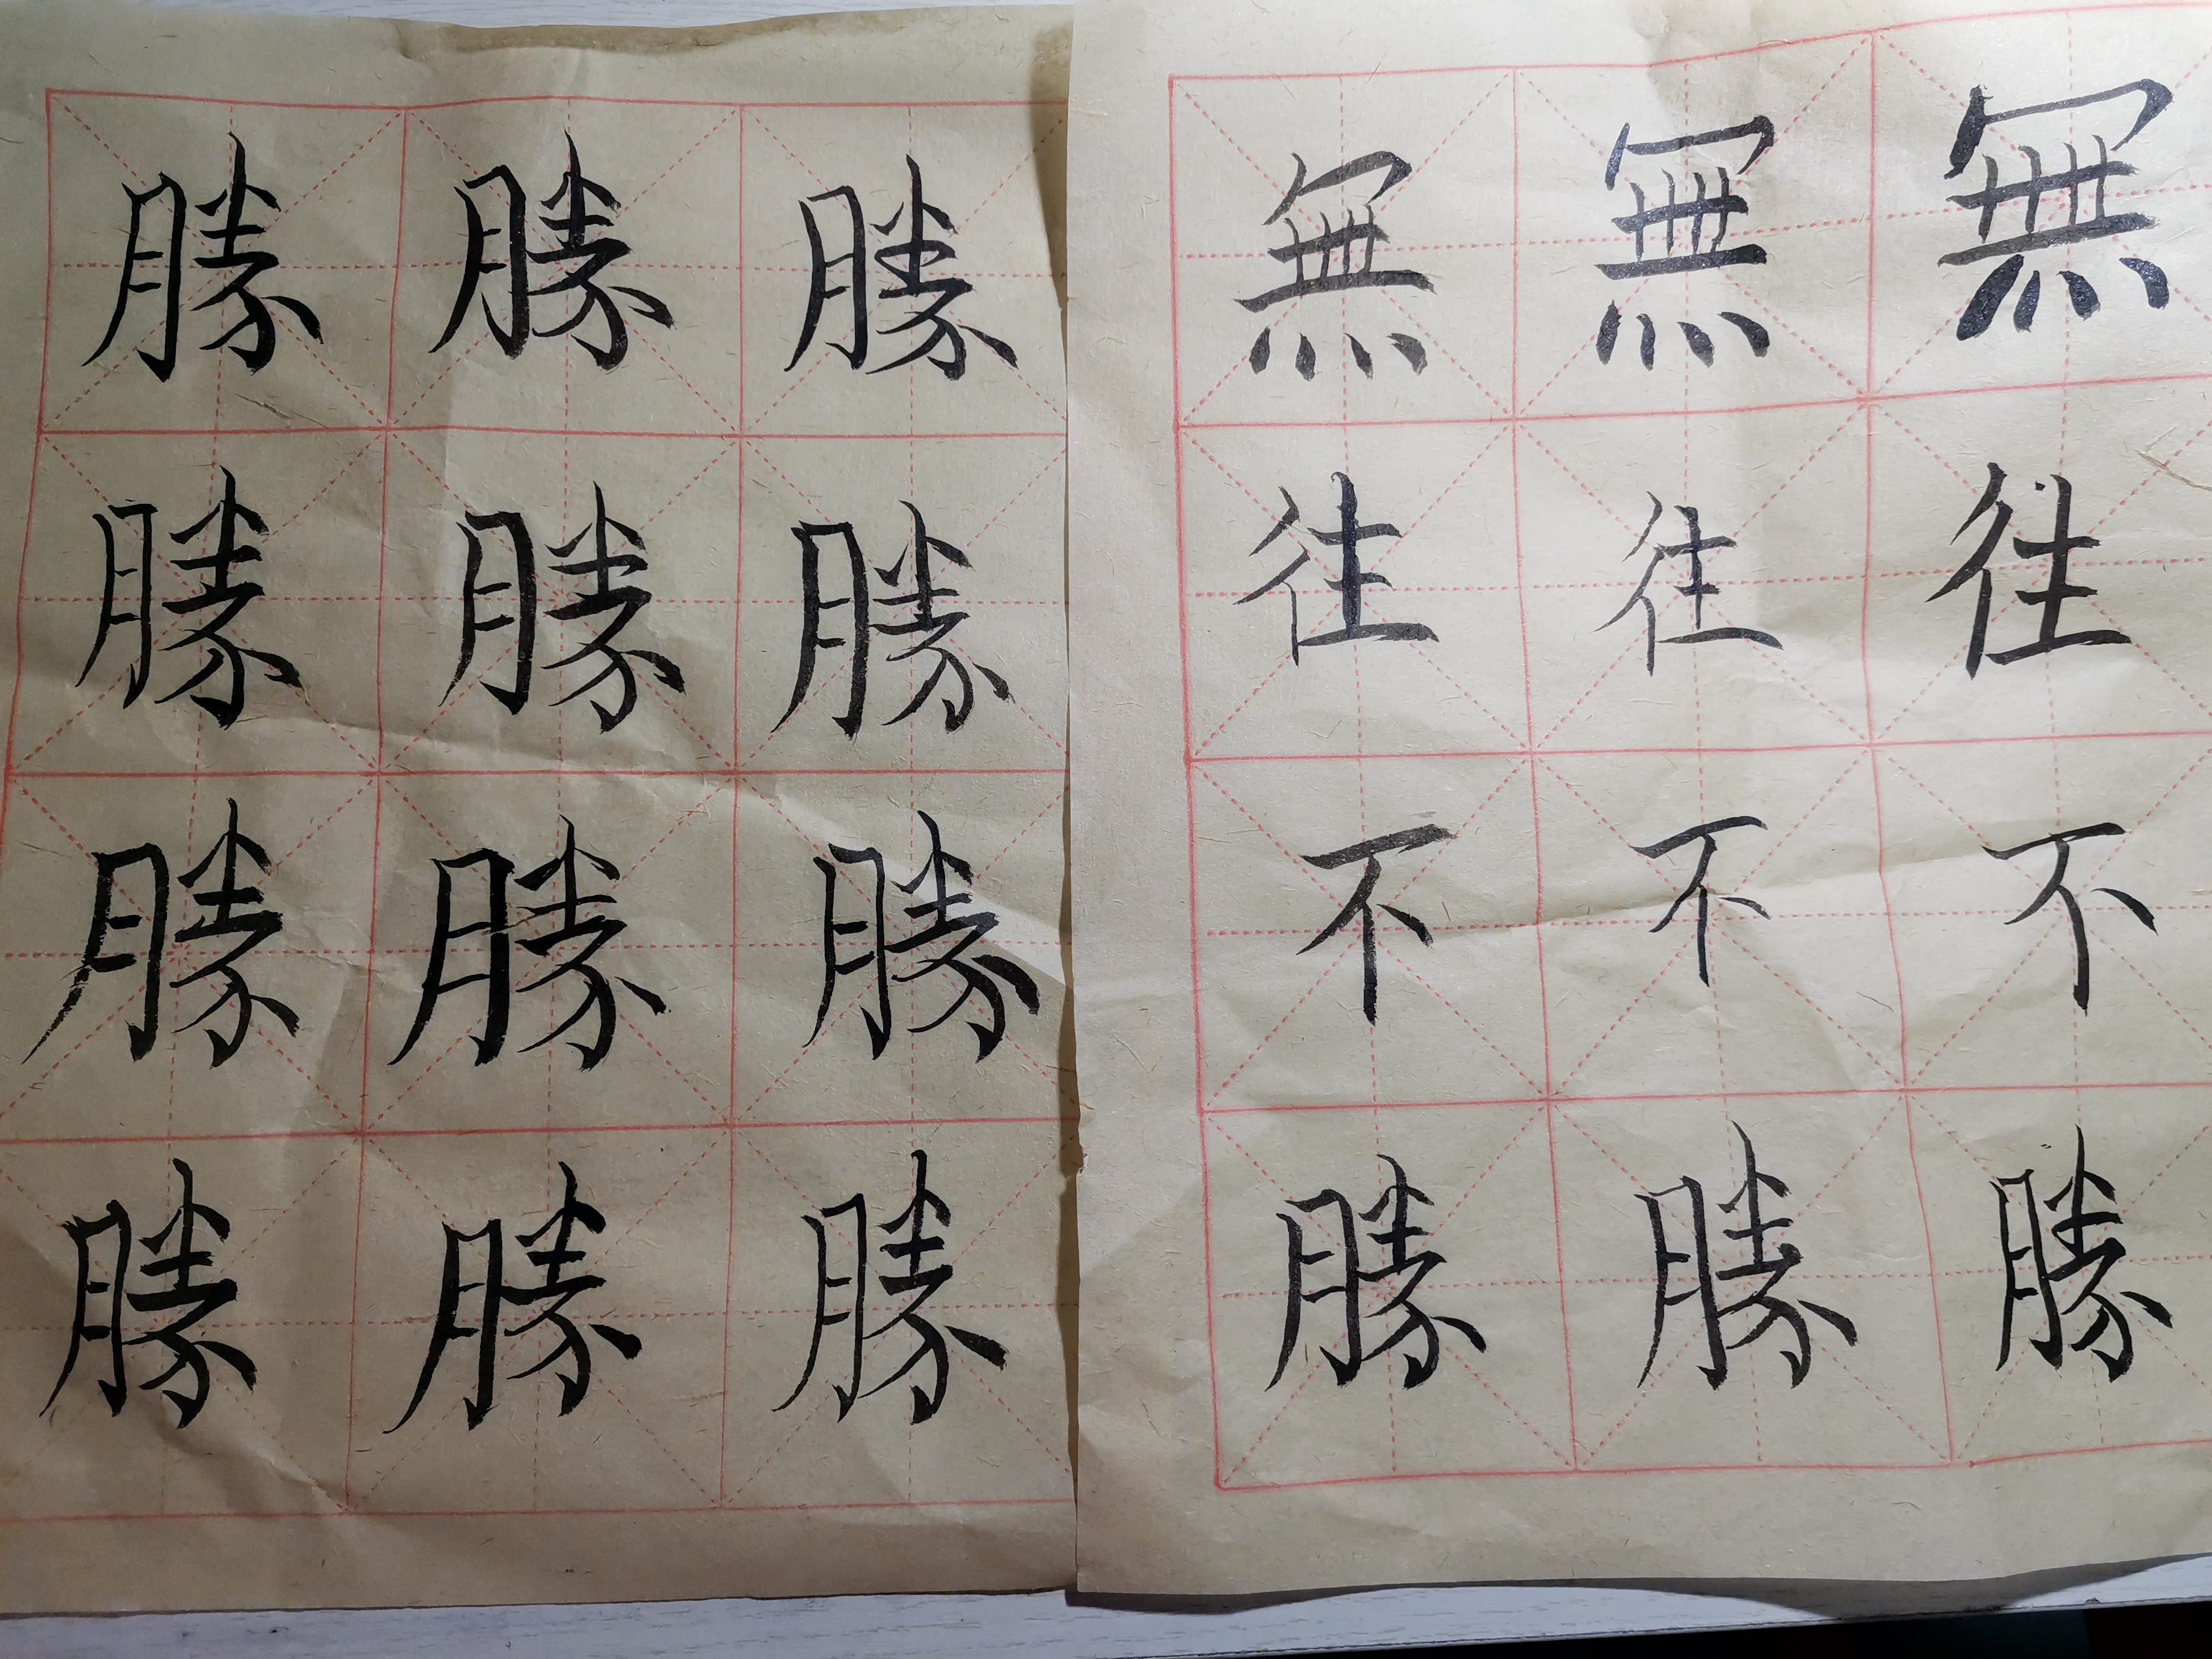 勝勝勝
勝勝勝
勝勝勝
勝勝勝
無無無
往往往
不不不
勝勝勝